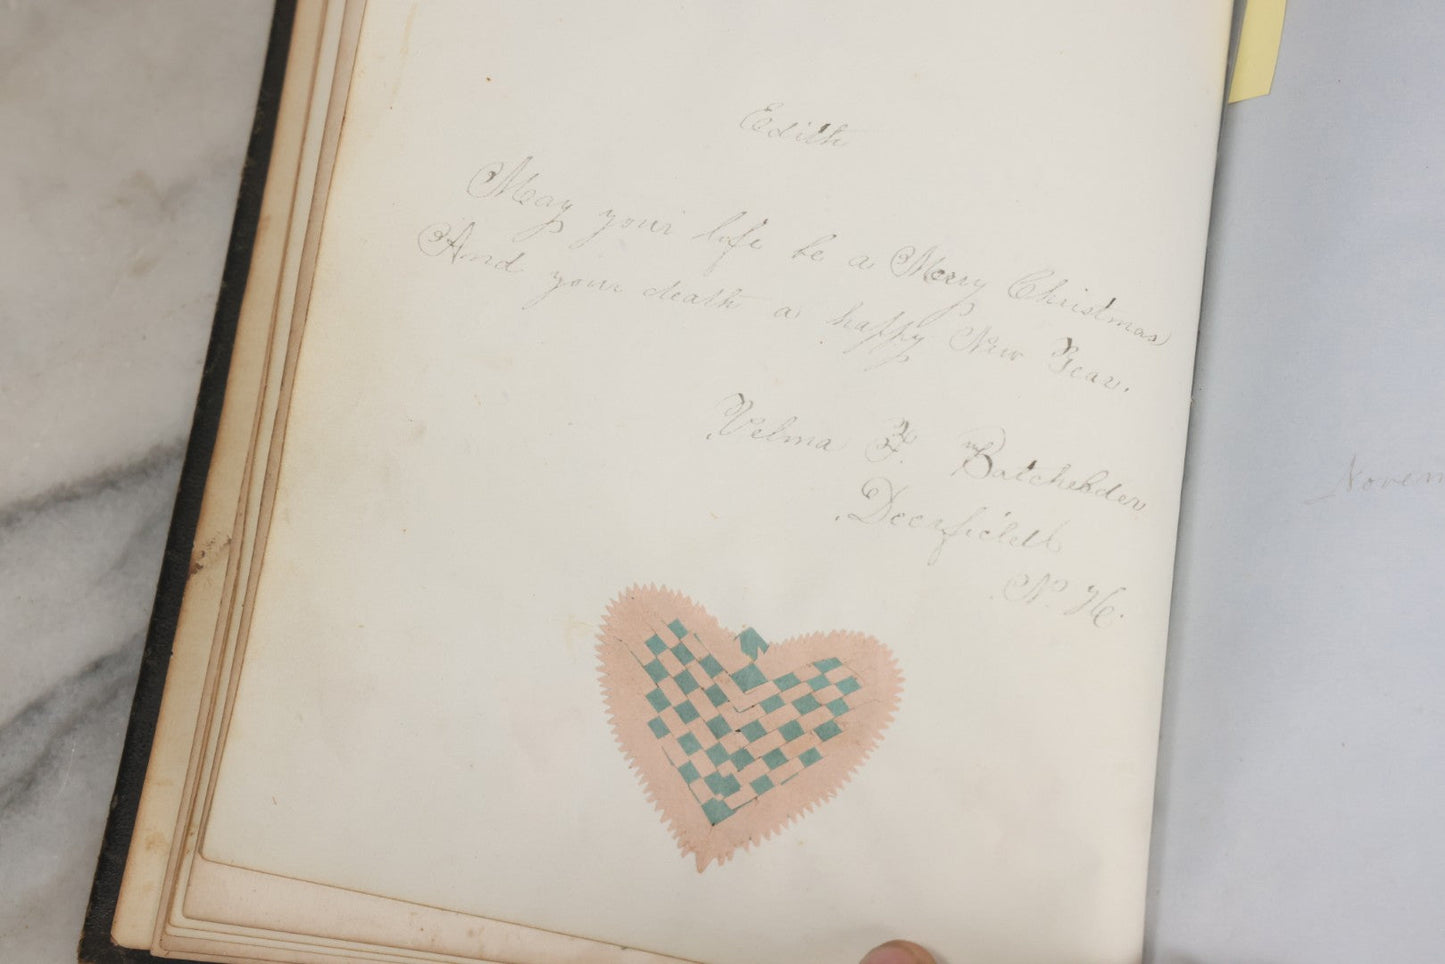 Edith
May your life be a Merry Christmas
And your death a happy New Year.
Velma F. Batchelder
Deerfield
N. H.
Novem